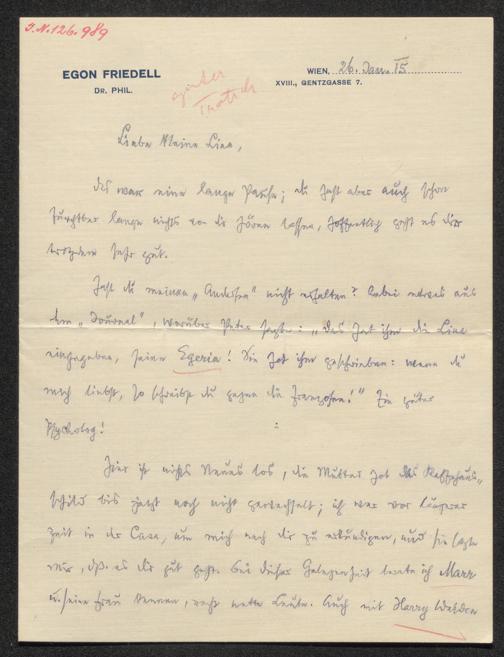 I.N. 126.989
EGON FRIEDELL
DR. PHIL.
WIEN, 26. Jan. 15
XVIII., GENTZGASSE 7.
guter
Tratsch
Liebe kleine Lina,
das war eine lange Pause; du hast aber auch schon
furchtbar lange nichts von dir hören lassen, hoffentlich geht es dir
trotzdem sehr gut.
Hast du meinen „Andersen" nicht erhalten? Anbei etwas aus
dem „Journal", worüber Peter sagte: „Das hat ihm die Lina
eingegeben, seine Egeria! Sie hat ihm geschrieben: wenn du
mich liebst, so schreibst du gegen die Franzosen!" Ein guter
Psycholog!
Hier ist nichts Neues los, die Mutter hat das Kaffehaus-
schild bis jetzt noch nicht gewechselt; ich war vor längerer
Zeit in der Casa, um mich nach dir zu erkundigen, und sie sagte
mir, daß es dir gut geht. Bei dieser Gelegenheit lernte ich Marx
u. seine Frau kennen, recht nette Leute. Auch mit Harry Walden